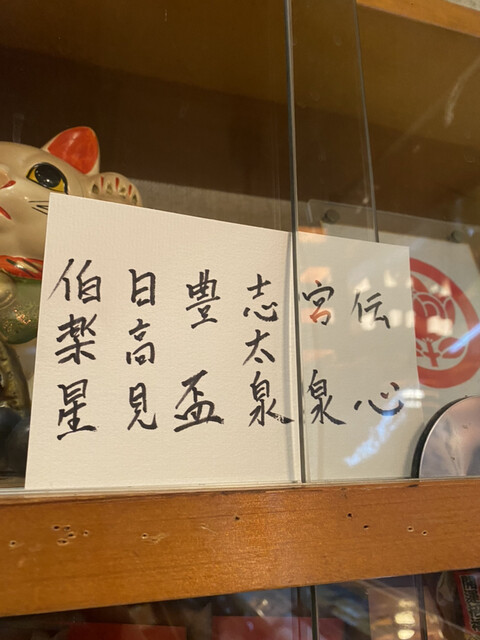 伝心
宮泉
志太泉
豊盃
日高見
伯楽星